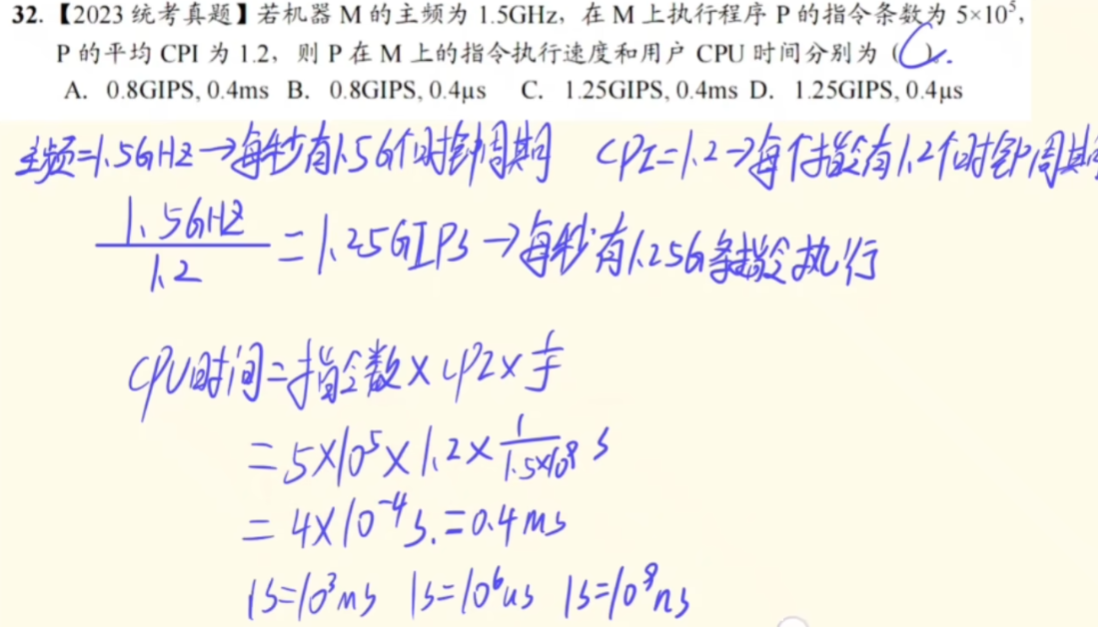 32.【2023 统考真题】若机器 M 的主频为 1.5GHz，在 M 上执行程序 P 的指令条数为 5×10⁵，
P 的平均 CPI 为 1.2，则 P 在 M 上的指令执行速度和用户 CPU 时间分别为（C）.
A. 0.8GIPS, 0.4ms B. 0.8GIPS, 0.4μs C. 1.25GIPS, 0.4ms D. 1.25GIPS, 0.4μs
主频=1.5GHz→每秒有1.5G个时钟周期 CPI=1.2→每个指令有1.2个时钟周期
1.5GHz/1.2 = 1.25GIPS→每秒有1.25G条指令执行
CPU时间=指令数×CPI×1/f
=5×10⁵×1.2×1/1.5×10⁹ s
=4×10⁻⁴s.=0.4ms
1s=10³ms 1s=10⁶us 1s=10⁹ns